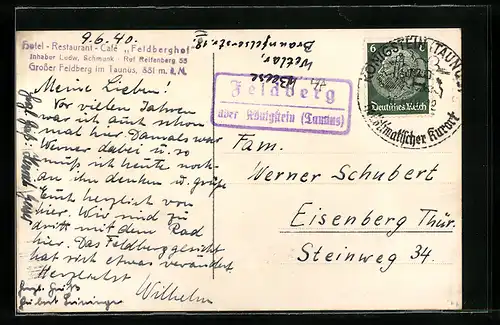 9.6.40.
Hotel-Restaurant-Café „Feldberghof"
Inhaber Ludw. Schmunk · Ruf Reifenberg 55
Großer Feldberg im Taunus, 881 m ü. M.
Meine Lieben!
Vor vielen Jahren
war ich auch schon
mal hier. Damals war
Werner dabei u. so
muß ich heute noch
an ihn denken u. grüße
Euch herzlich von
hier. Wir sind zu
dritt mit dem Rad
hier. Das Feldberggesicht
hat sich etwas verändert
Herzlichst
Wilhelm
Feldberg
über Königstein (Taunus)
6
Deutsches Reich
KÖNIGSTEIN (TAUNUS)
Heilklimatischer Kurort
Fam.
Werner Schubert
Eisenberg Thür.
Steinweg 34.